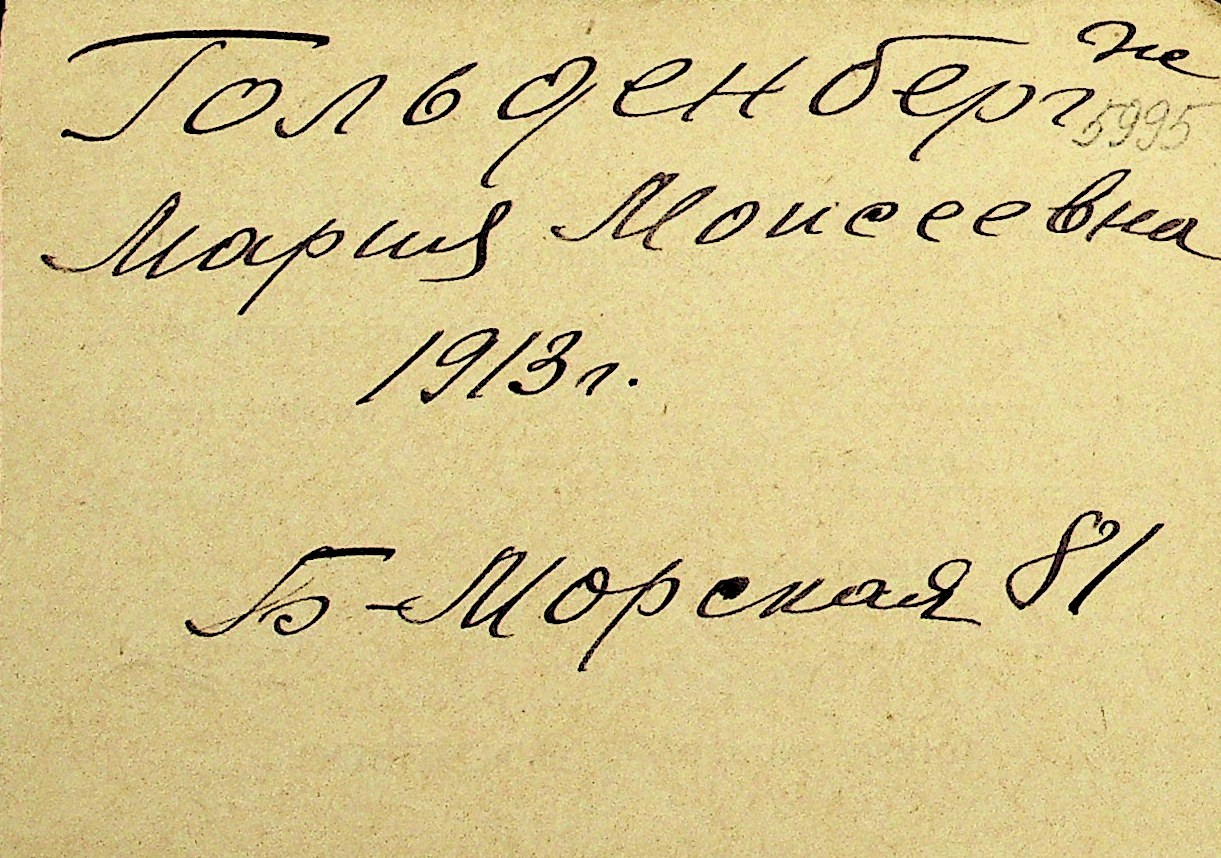 Гольденберг
5995
Мария Моисеевна
1913г.
Б-Морская 81